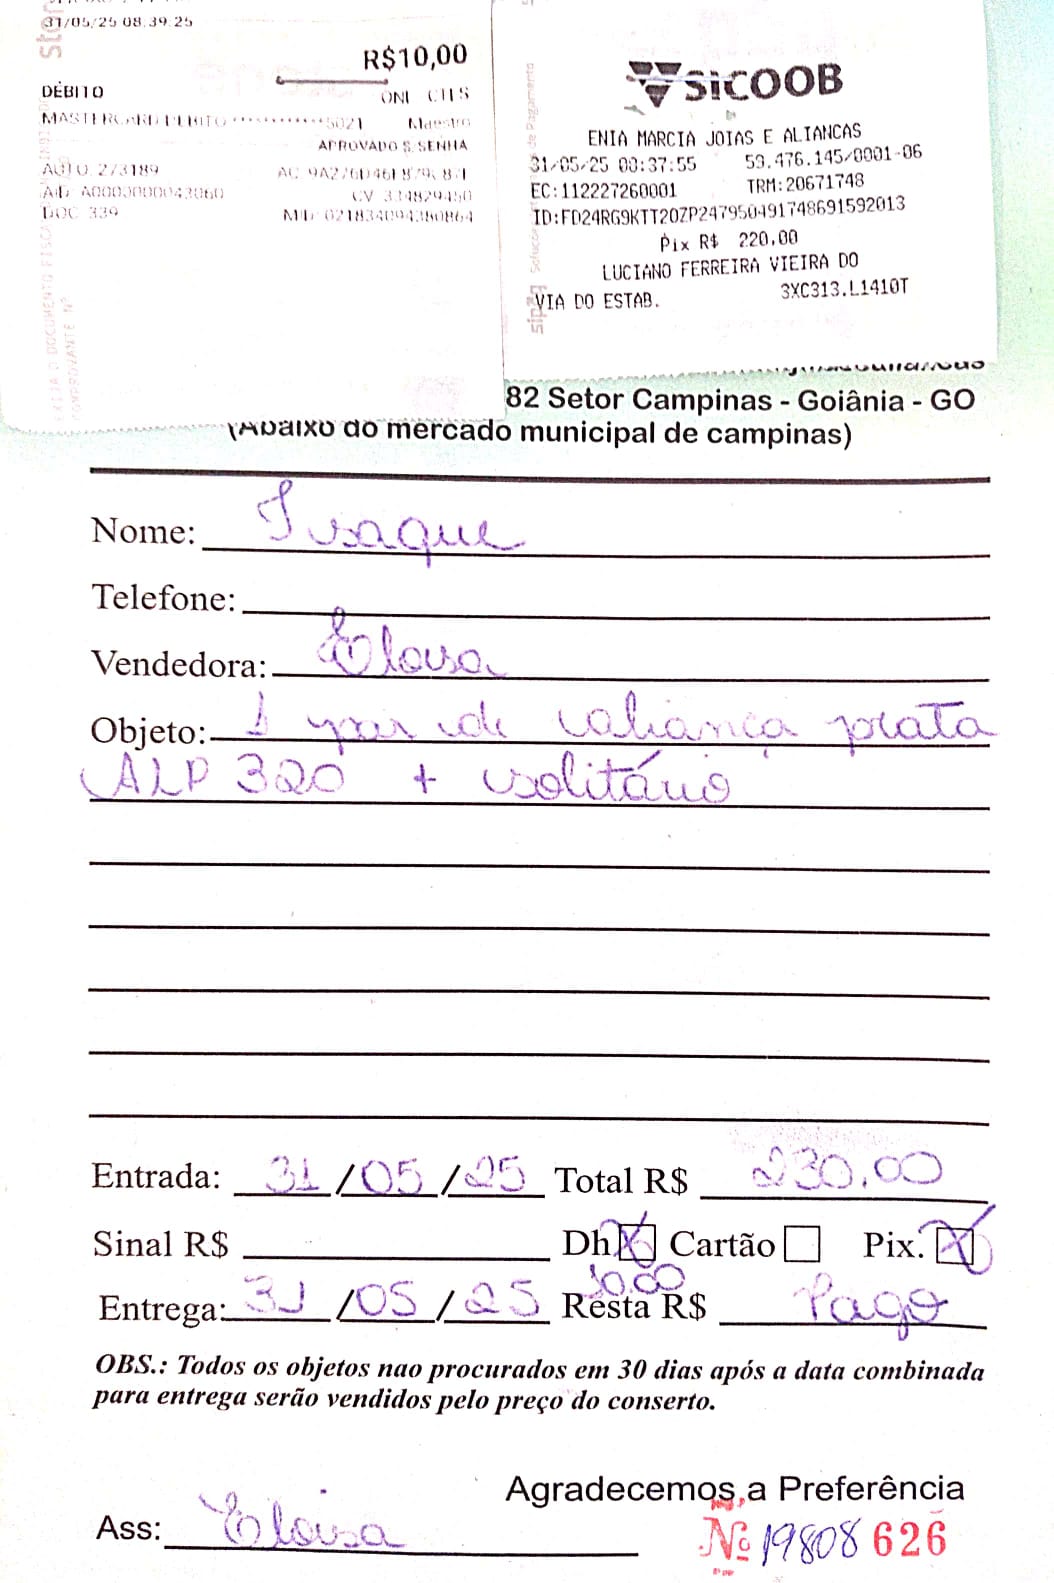 31/05/25 08:39:25
R$10,00
DÉBITO
ONL CHS
MASTERCARD DEBITO ************5021 Maestro
APROVADO S/SENHA
AUTO 273189
AID A0000000043060
DOC 339
SICOOB
ENIA MARCIA JOIAS E ALIANCAS
31/05/25 08:37:55 59.476.145/0001-06
EC:112227260001 TRM:20671748
ID:FD24RG9KTT20ZP247950491748691592013
Pix R$ 220,00
LUCIANO FERREIRA VIEIRA DO
VIA DO ESTAB. 3XC313.L1410T
82 Setor Campinas - Goiânia - GO
(Abaixo do mercado municipal de campinas)
Nome: Isaque
Telefone:
Vendedora: Eloisa
Objeto: 1 par de aliança prata
ALP 320 + solitário
Entrada: 31/05/25 Total R$ 230,00
Sinal R$ Dh X Cartão Pix. X
10.00
Entrega: 31/05/25 Resta R$ Pago
OBS.: Todos os objetos nao procurados em 30 dias após a data combinada
para entrega serão vendidos pelo preço do conserto.
Agradecemos a Preferência
Ass: Eloisa
Nº 19808 626